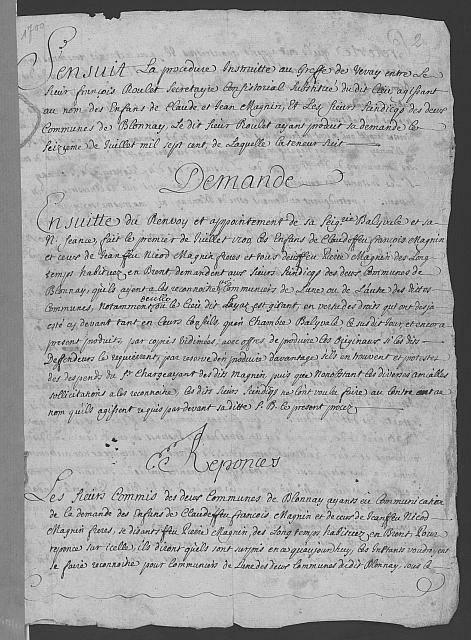 1700
2
S'ensuit La procedure Instruitte au Greffe de Vevay entre Le
Sieur françois Roulet Secretaire Consistorial Substitue du dit Lieu agissant
au nom des Enfans de Claude et Jean Magnin, et Les Sieurs Sindiqs des deux
Communes de Blonnay, Le dit Sieur Roulet ayant produit sa demande le
Seizieme de Juillet mil sept cent, de Laquelle la teneur suit
Demande
Ensuitte du Renvoy et appointement de sa Seigrie Balivale et sa
fait le premier de Juillet 1700 les Enfans de Claude feu françois Magnin
et ceux de Jean feu Nicod Magnin freres et tous deux feu Pierre Magnin des Long
temps habitués en Brent demandent aux Sieurs Sindiqs des deux Communes de
Blonnay, qu'ils ayent a les reconnoitre Communiers de Lune ou de Lautre des dittes
Communes, Notamment de icelle ou le Lieu dit est gisant, en verse des droits qui ont desja
esté cy devant tant en Cours Consils quen Chambre Balivale Ce susdit Jour, et encora
present produits par copies Vidimées, avec offres de produire les Originaux si les dits
Deffendeurs le requierent, par reserve den produire davantage s'ils en trouvent et protestes
des despends du Sr Chargeayant des dits Magnin, puis que Nonobstant les diverses amiables
sollicitations a les reconnoitre les dits Sieurs Sindiqs ne lont voulu faire au Contre
nom qu'ils agissent requis par devant sa ditte S. B. le present procez
Reponces
Les Sieurs Commis des deux Communes de Blonnay ayants eu Communication
de la demande des Enfans de Claude feu françois Magnin et de ceux de Jean feu Nicod
Magnin freres, se disants feu Pierre Magnin, des Long temps habituez en Brent, Pour
reponce sur icelle, ils dirent qu'ils sont surpris en ce quaujourdhuy, les Instants voudroyent
se faire reconnoitre pour Communiers de Lune des deux Communes dudit Blonnay, sous le